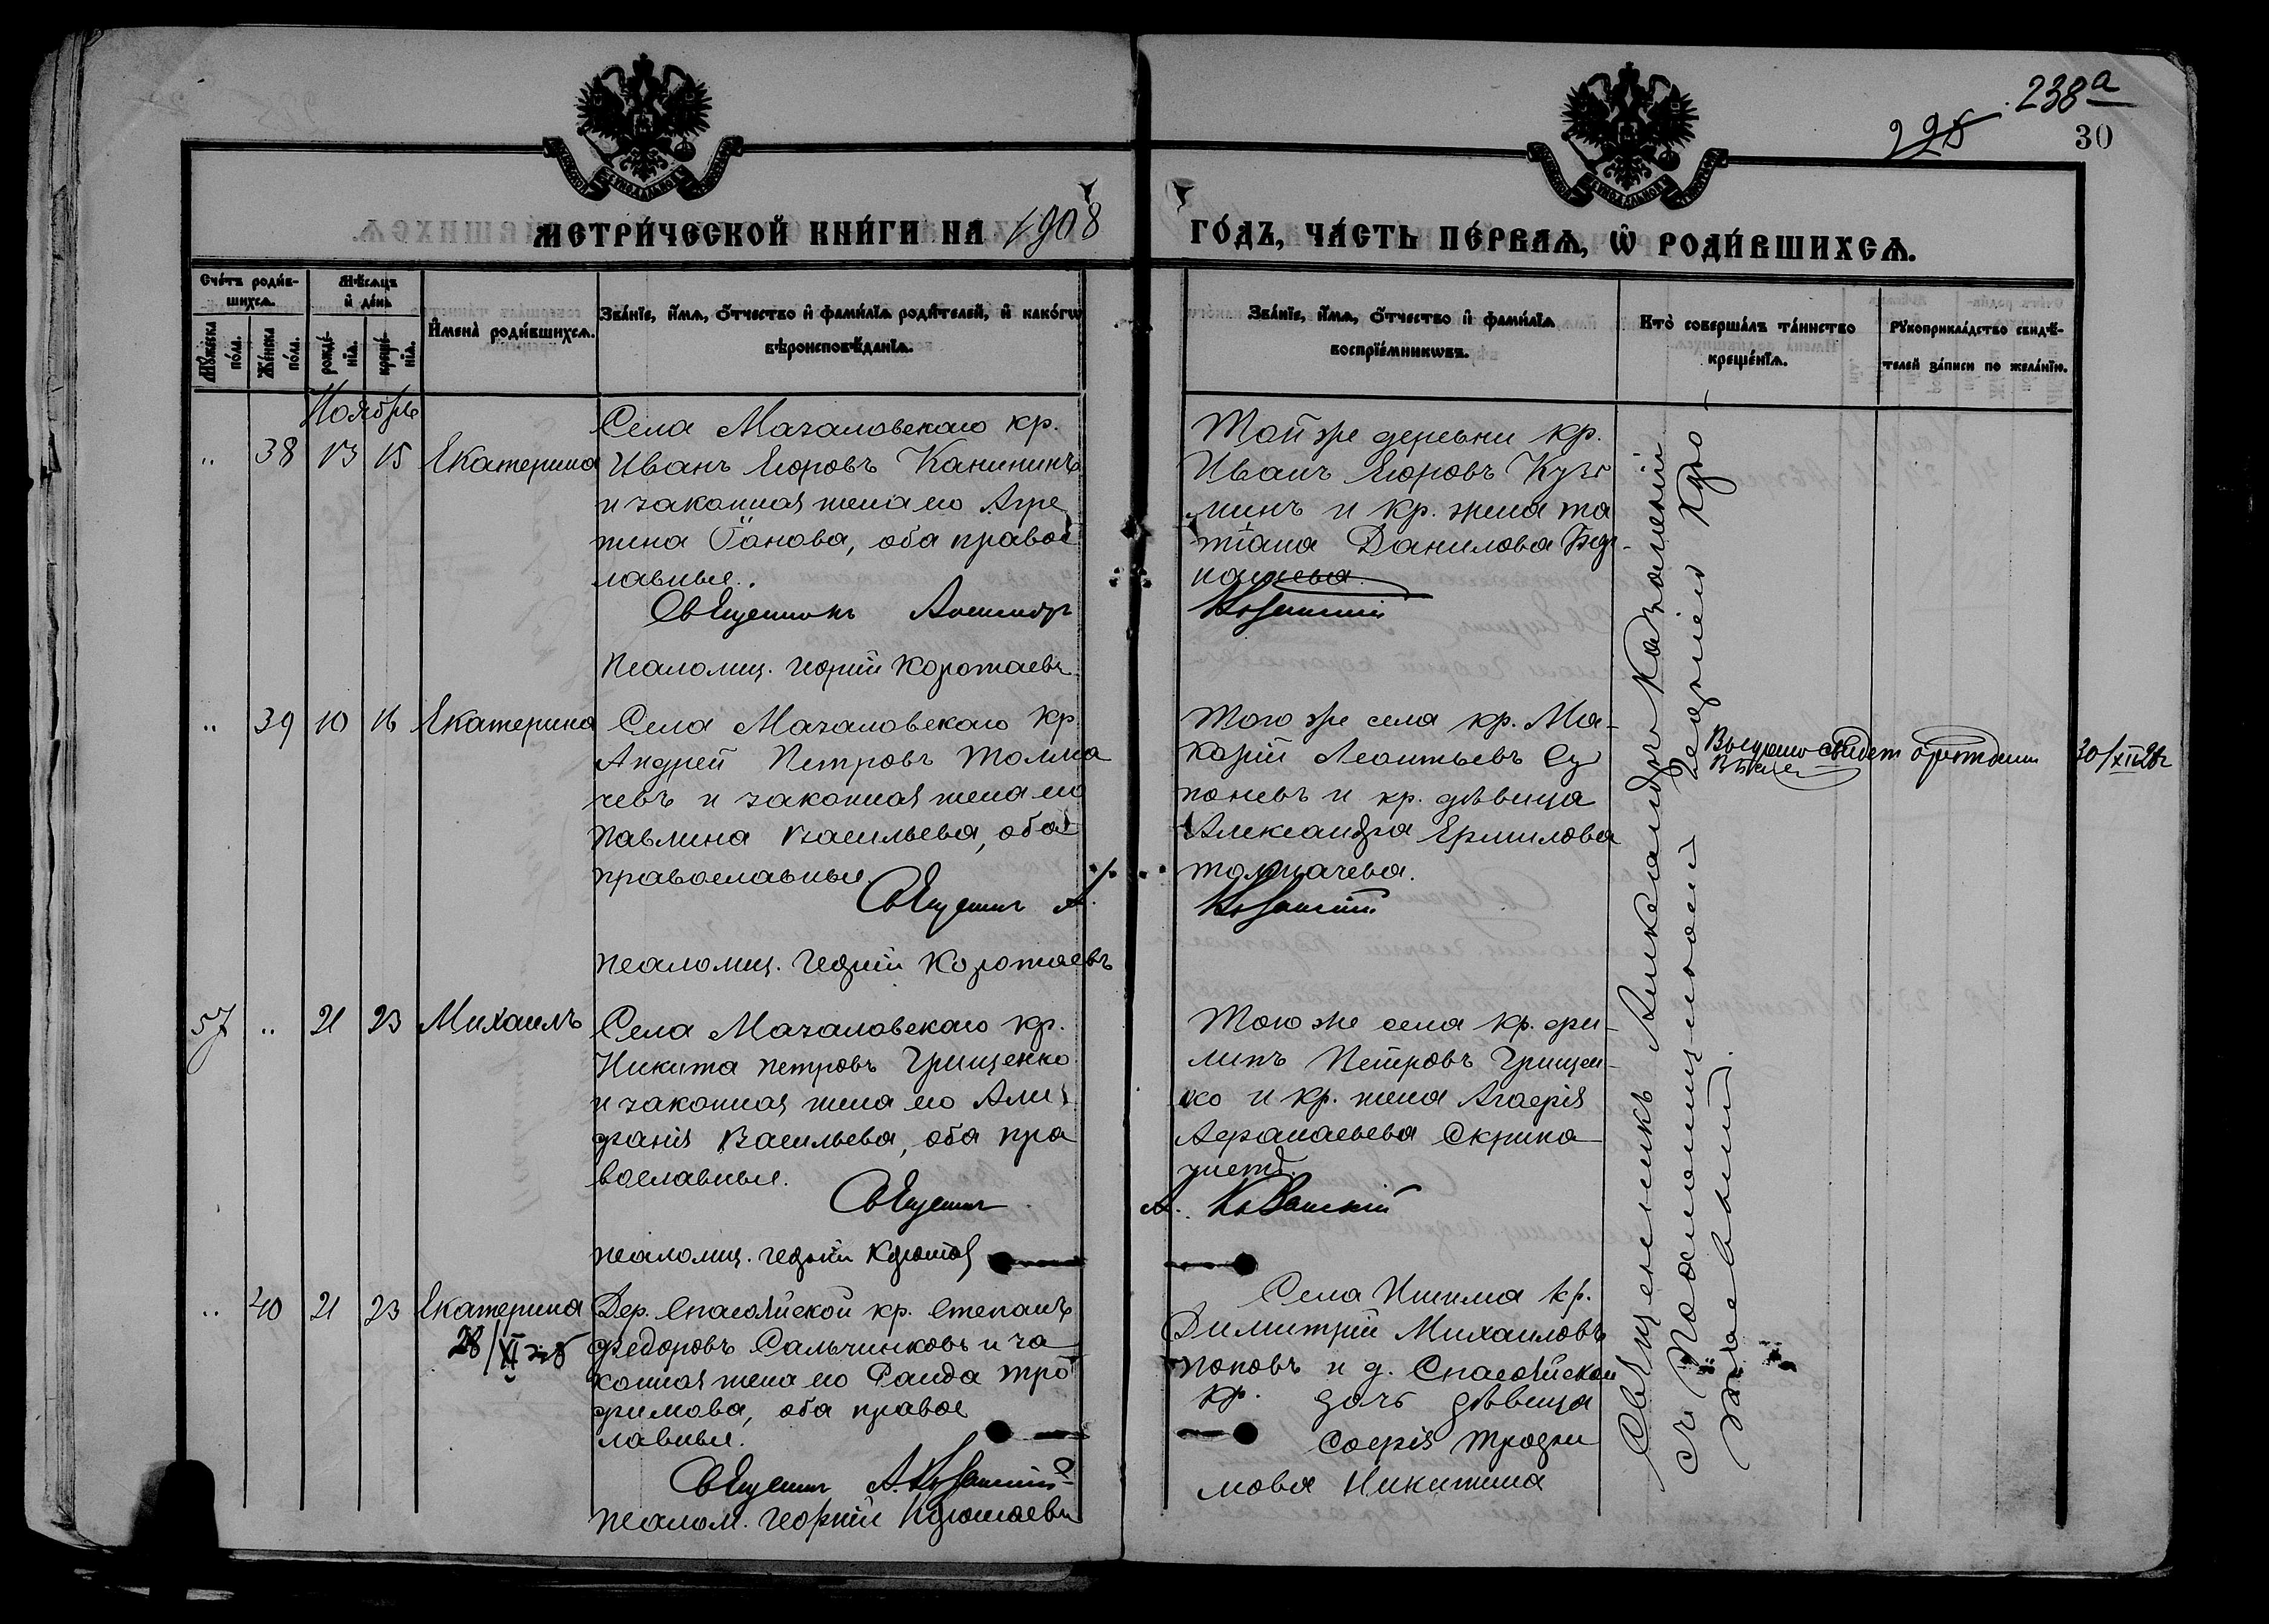 238а
225
30
МЕТРИ́ЧЕСКОЙ КНИ́ГИ НА 1908
ГО́ДЪ, ЧА́СТЬ ПЕ́РВАѦ, Ѡ҆ РОДИ́ВШИХСѦ.
Сче́тъ роди́в-
шихсѧ.
Мꙋ́жеска по́ла.
Же́нска по́ла.
Мѣ́сѧцъ
и҆ де́нь
рожде́-
нїѧ.
креще́-
нїѧ.
И҆мена̀ роди́вшихсѧ.
Зва́нїе, и҆́мѧ, ѻ҆́тчество и҆ фами́лїѧ роди́телей, и҆ како́гѡ
вѣроисповѣ́данїѧ.
Зва́нїе, и҆́мѧ, ѻ҆́тчество и҆ фами́лїѧ
воспрїе́мникѡвъ.
Кто̀ соверша́лъ та́инство
креще́нїѧ.
Рꙋкоприкла́дство свидѣ́-
телей за́писи по жела́нїю.
Ноябрь
" 38 13 15 Екатерина
Села Мачаловскаго кр.
Иванъ Егоровъ Канининъ
и законная жена его Агре
пина Іанова, оба правос
лавные.
Священникъ Александръ
Псаломщ. Георгій Коротаевъ
Той же деревни кр.
Иванъ Егоровъ Кузь
минъ и кр. жена Та
тіана Данилова
Казанскій
" 39 10 16 Екатерина
Села Мачаловскаго кр.
Андрей Петровъ Толма
чевъ и законная жена его
Павлина Васильева, оба
православные.
Священникъ А.
Псаломщ. Георгій Коротаевъ
Того же села кр. Ма-
карій Леонтьевъ Су
поневъ и кр. дѣвица
Александра Ермилова
Толмачева.
Казанскій
30/XII 28г
57 " 21 23 Михаилъ
Села Мачаловскаго кр.
Никита Петровъ Грищенко
и законная жена его Али
фанія Васильева, оба пра
вославные.
Священникъ
Псаломщ. Георгій Коротаев
Того же села кр. Фи-
липъ Петровъ Грищен-
ко и кр. жена Агафія
Афанасьева Скрипа
А. Казанскій
" 40 21 23 Екатерина
28/XI
Дер. Спасояйской кр. Степанъ
Федоровъ Сальчинковъ и за
конная жена его Раида Тро
фимова, оба правос
лавные.
Священникъ А. Казанскій
Псалом. Георгій Коротаевъ
Села Ишима кр.
Димитрій Михаиловъ
Поповъ и д. Спасояйской
кр. дочь дѣвица
Софія Трофи
мова Никитина
Священникъ Александръ Казанскій
съ Псаломщикомъ Георгіемъ Коро-
таевымъ.